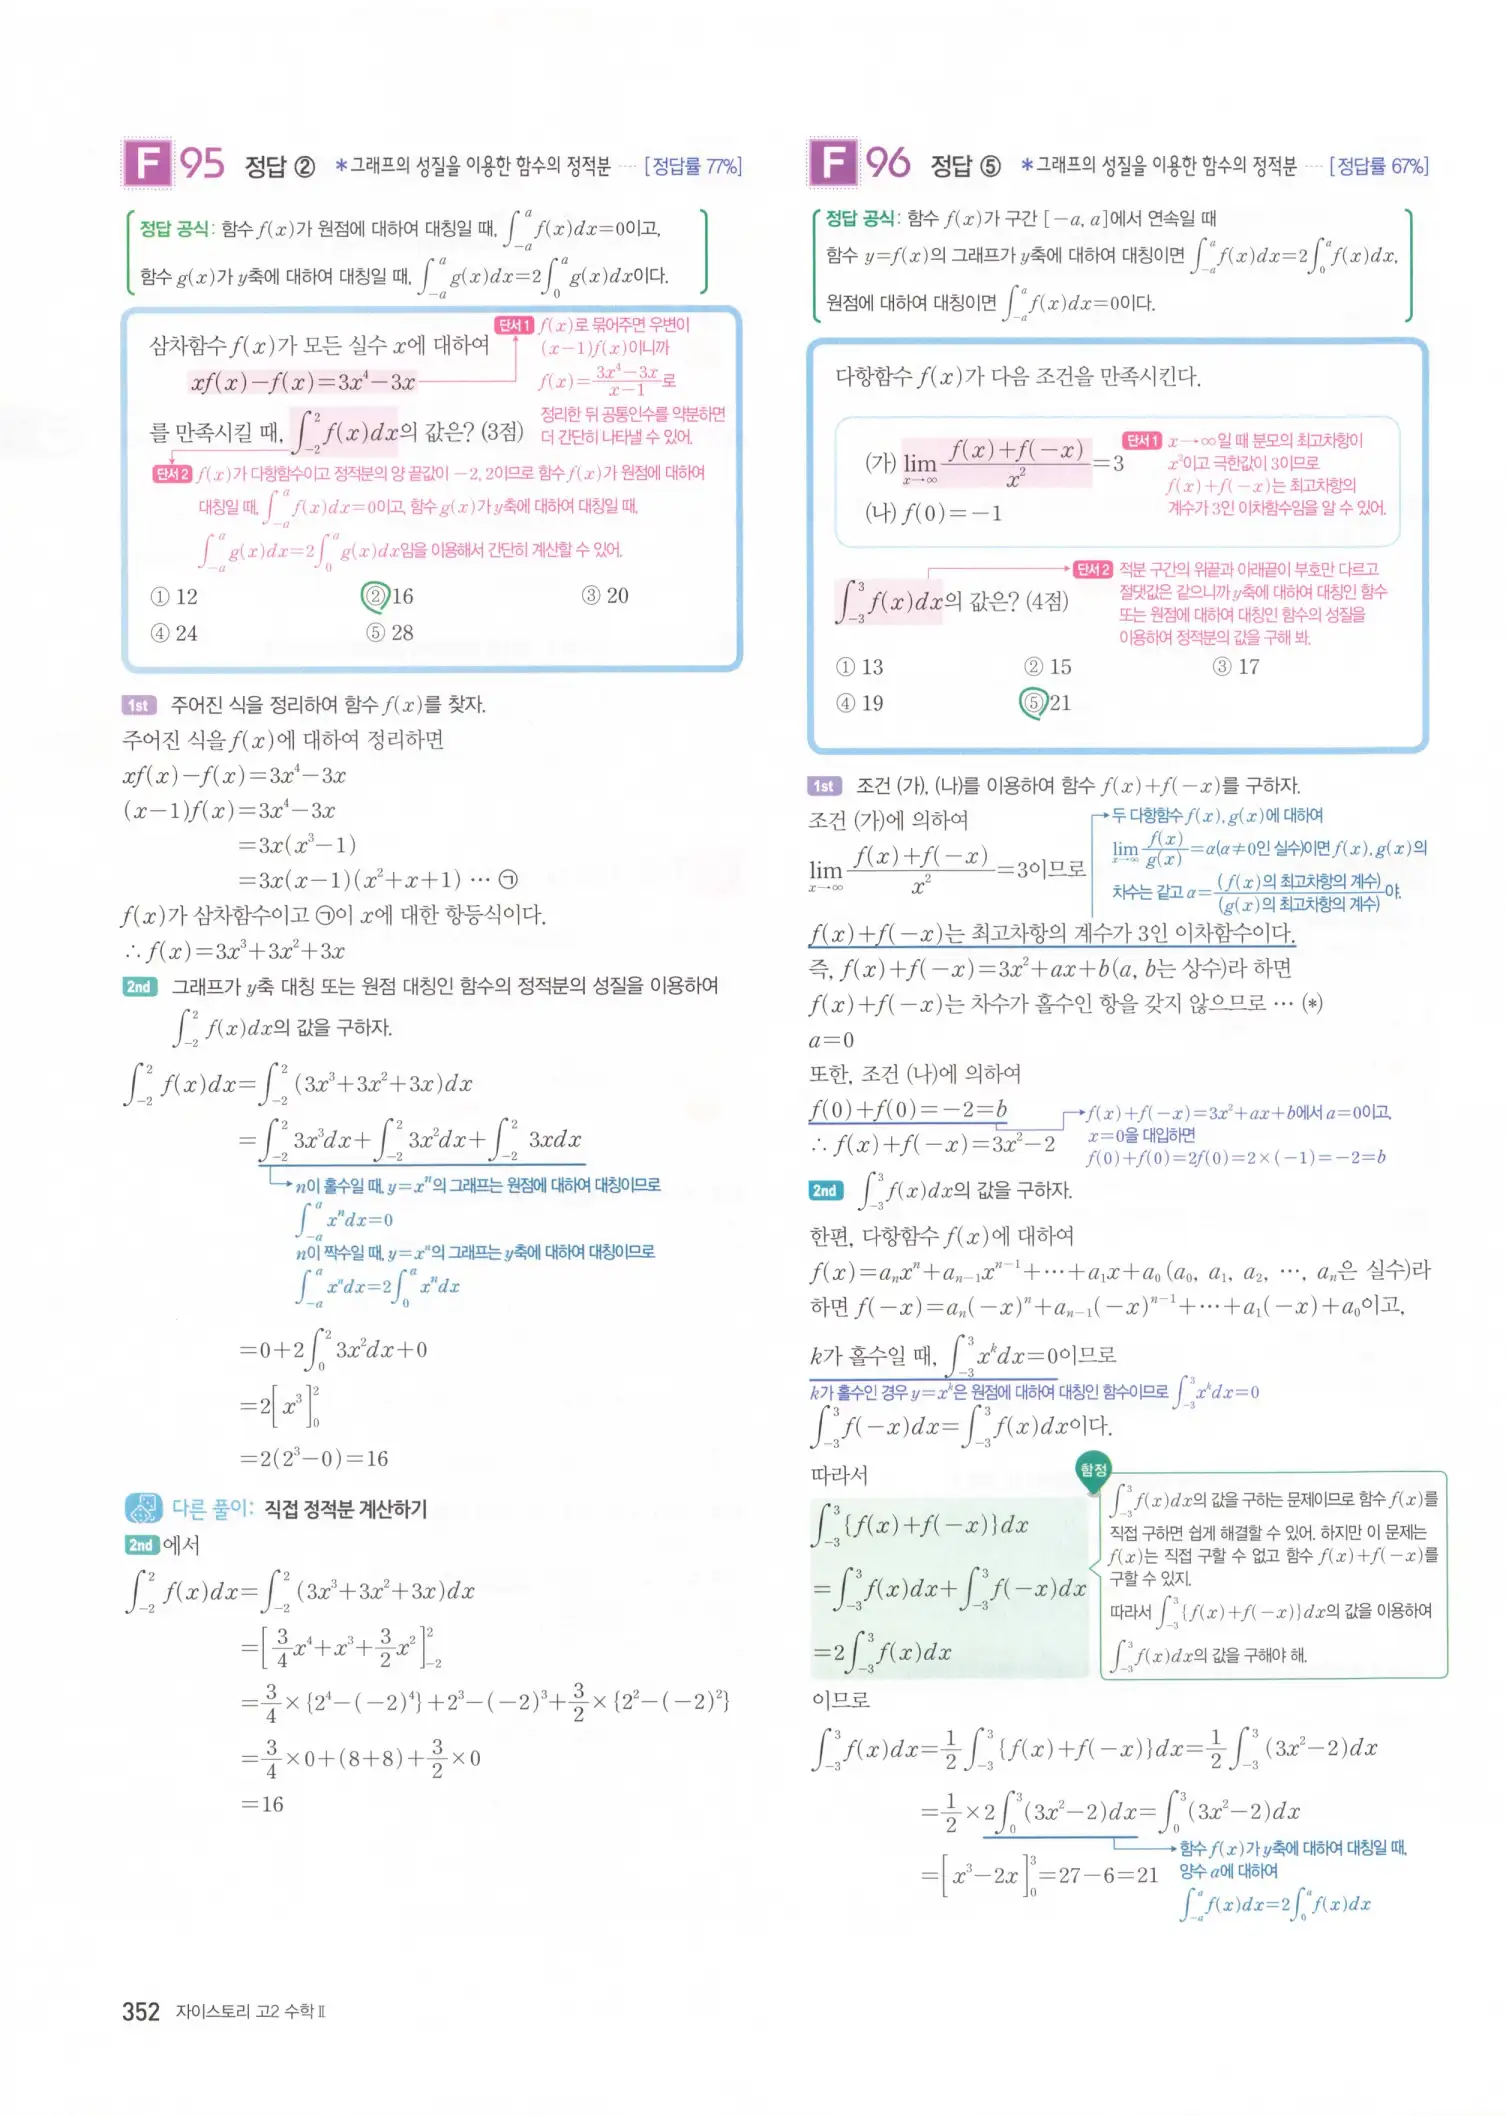 F 95 정답 ② *그래프의 성질을 이용한 함수의 정적분 ···· [정답률 77%]
정답 공식: 함수 f(x)가 원점에 대하여 대칭일 때, ∫_{-a}^{a} f(x)dx=0이고,
함수 g(x)가 y축에 대하여 대칭일 때, ∫_{-a}^{a} g(x)dx=2∫_{0}^{a} g(x)dx이다.
삼차함수 f(x)가 모든 실수 x에 대하여
xf(x)-f(x)=3x⁴-3x
단서1 f(x)로 묶어주면 우변이
(x-1)f(x)이니까
f(x)=(3x⁴-3x)/(x-1)로
정리한 뒤 공통인수를 약분하면
더 간단히 나타낼 수 있어.
를 만족시킬 때, ∫_{-2}^{2} f(x)dx의 값은? (3점)
단서2 f(x)가 다항함수이고 정적분의 양 끝값이 -2, 2이므로 함수 f(x)가 원점에 대하여
대칭일 때, ∫_{-a}^{a} f(x)dx=0이고, 함수 g(x)가 y축에 대하여 대칭일 때,
∫_{-a}^{a} g(x)dx=2∫_{0}^{a} g(x)dx임을 이용해서 간단히 계산할 수 있어.
① 12 ② 16 ③ 20
④ 24 ⑤ 28
1st 주어진 식을 정리하여 함수 f(x)를 찾자.
주어진 식을 f(x)에 대하여 정리하면
xf(x)-f(x)=3x⁴-3x
(x-1)f(x)=3x⁴-3x
=3x(x³-1)
=3x(x-1)(x²+x+1) ··· ㉠
f(x)가 삼차함수이고 ㉠이 x에 대한 항등식이다.
∴ f(x)=3x³+3x²+3x
2nd 그래프가 y축 대칭 또는 원점 대칭인 함수의 정적분의 성질을 이용하여
∫_{-2}^{2} f(x)dx의 값을 구하자.
∫_{-2}^{2} f(x)dx=∫_{-2}^{2} (3x³+3x²+3x)dx
=∫_{-2}^{2} 3x³dx+∫_{-2}^{2} 3x²dx+∫_{-2}^{2} 3xdx
n이 홀수일 때, y=xⁿ의 그래프는 원점에 대하여 대칭이므로
∫_{-a}^{a} xⁿdx=0
n이 짝수일 때, y=xⁿ의 그래프는 y축에 대하여 대칭이므로
∫_{-a}^{a} xⁿdx=2∫_{0}^{a} xⁿdx
=0+2∫_{0}^{2} 3x²dx+0
=2[x³]_{0}^{2}
=2(2³-0)=16
다른 풀이: 직접 정적분 계산하기
2nd 에서
∫_{-2}^{2} f(x)dx=∫_{-2}^{2} (3x³+3x²+3x)dx
=[3/4x⁴+x³+3/2x²]_{-2}^{2}
=3/4×{2⁴-(-2)⁴}+2³-(-2)³+3/2×{2²-(-2)²}
=3/4×0+(8+8)+3/2×0
=16
F 96 정답 ⑤ *그래프의 성질을 이용한 함수의 정적분 ···· [정답률 67%]
정답 공식: 함수 f(x)가 구간 [-a, a]에서 연속일 때
함수 y=f(x)의 그래프가 y축에 대하여 대칭이면 ∫_{-a}^{a} f(x)dx=2∫_{0}^{a} f(x)dx,
원점에 대하여 대칭이면 ∫_{-a}^{a} f(x)dx=0이다.
다항함수 f(x)가 다음 조건을 만족시킨다.
(가) lim_{x→∞} (f(x)+f(-x))/x²=3
(나) f(0)=-1
단서1 x→∞일 때 분모의 최고차항이
x²이고 극한값이 3이므로
f(x)+f(-x)는 최고차항의
계수가 3인 이차함수임을 알 수 있어.
∫_{-3}^{3} f(x)dx의 값은? (4점)
단서2 적분 구간의 위끝과 아래끝이 부호만 다르고
절댓값은 같으니까 y축에 대하여 대칭인 함수
또는 원점에 대하여 대칭인 함수의 성질을
이용하여 정적분의 값을 구해 봐.
① 13 ② 15 ③ 17
④ 19 ⑤ 21
1st 조건 (가), (나)를 이용하여 함수 f(x)+f(-x)를 구하자.
조건 (가)에 의하여
lim_{x→∞} (f(x)+f(-x))/x²=3이므로
두 다항함수 f(x), g(x)에 대하여
lim_{x→∞} f(x)/g(x)=α(α≠0인 실수)이면 f(x), g(x)의
차수는 같고 α=(f(x)의 최고차항의 계수)/(g(x)의 최고차항의 계수)야.
f(x)+f(-x)는 최고차항의 계수가 3인 이차함수이다.
즉, f(x)+f(-x)=3x²+ax+b(a, b는 상수)라 하면
f(x)+f(-x)는 차수가 홀수인 항을 갖지 않으므로 ··· (*)
a=0
또한, 조건 (나)에 의하여
f(0)+f(0)=-2=b
∴ f(x)+f(-x)=3x²-2
f(x)+f(-x)=3x²+ax+b에서 a=0이고,
x=0을 대입하면
f(0)+f(0)=2f(0)=2×(-1)=-2=b
2nd ∫_{-3}^{3} f(x)dx의 값을 구하자.
한편, 다항함수 f(x)에 대하여
f(x)=aₙxⁿ+aₙ₋₁xⁿ⁻¹+···+a₁x+a₀ (a₀, a₁, a₂, ···, aₙ은 실수)라
하면 f(-x)=aₙ(-x)ⁿ+aₙ₋₁(-x)ⁿ⁻¹+···+a₁(-x)+a₀이고,
k가 홀수일 때, ∫_{-3}^{3} xᵏdx=0이므로
k가 홀수인 경우 y=xᵏ은 원점에 대하여 대칭인 함수이므로 ∫_{-3}^{3} xᵏdx=0
∫_{-3}^{3} f(-x)dx=∫_{-3}^{3} f(x)dx이다.
따라서
∫_{-3}^{3} {f(x)+f(-x)}dx
=∫_{-3}^{3} f(x)dx+∫_{-3}^{3} f(-x)dx
=2∫_{-3}^{3} f(x)dx
함정
∫_{-3}^{3} f(x)dx의 값을 구하는 문제이므로 함수 f(x)를
직접 구하면 쉽게 해결할 수 있어. 하지만 이 문제는
f(x)는 직접 구할 수 없고 함수 f(x)+f(-x)를
구할 수 있지.
따라서 ∫_{-3}^{3} {f(x)+f(-x)}dx의 값을 이용하여
∫_{-3}^{3} f(x)dx의 값을 구해야 해.
이므로
∫_{-3}^{3} f(x)dx=1/2∫_{-3}^{3} {f(x)+f(-x)}dx=1/2∫_{-3}^{3} (3x²-2)dx
=1/2×2∫_{0}^{3} (3x²-2)dx=∫_{0}^{3} (3x²-2)dx
=[x³-2x]_{0}^{3}=27-6=21
함수 f(x)가 y축에 대하여 대칭일 때,
양수 a에 대하여
∫_{-a}^{a} f(x)dx=2∫_{0}^{a} f(x)dx
352 자이스토리 고2 수학Ⅱ